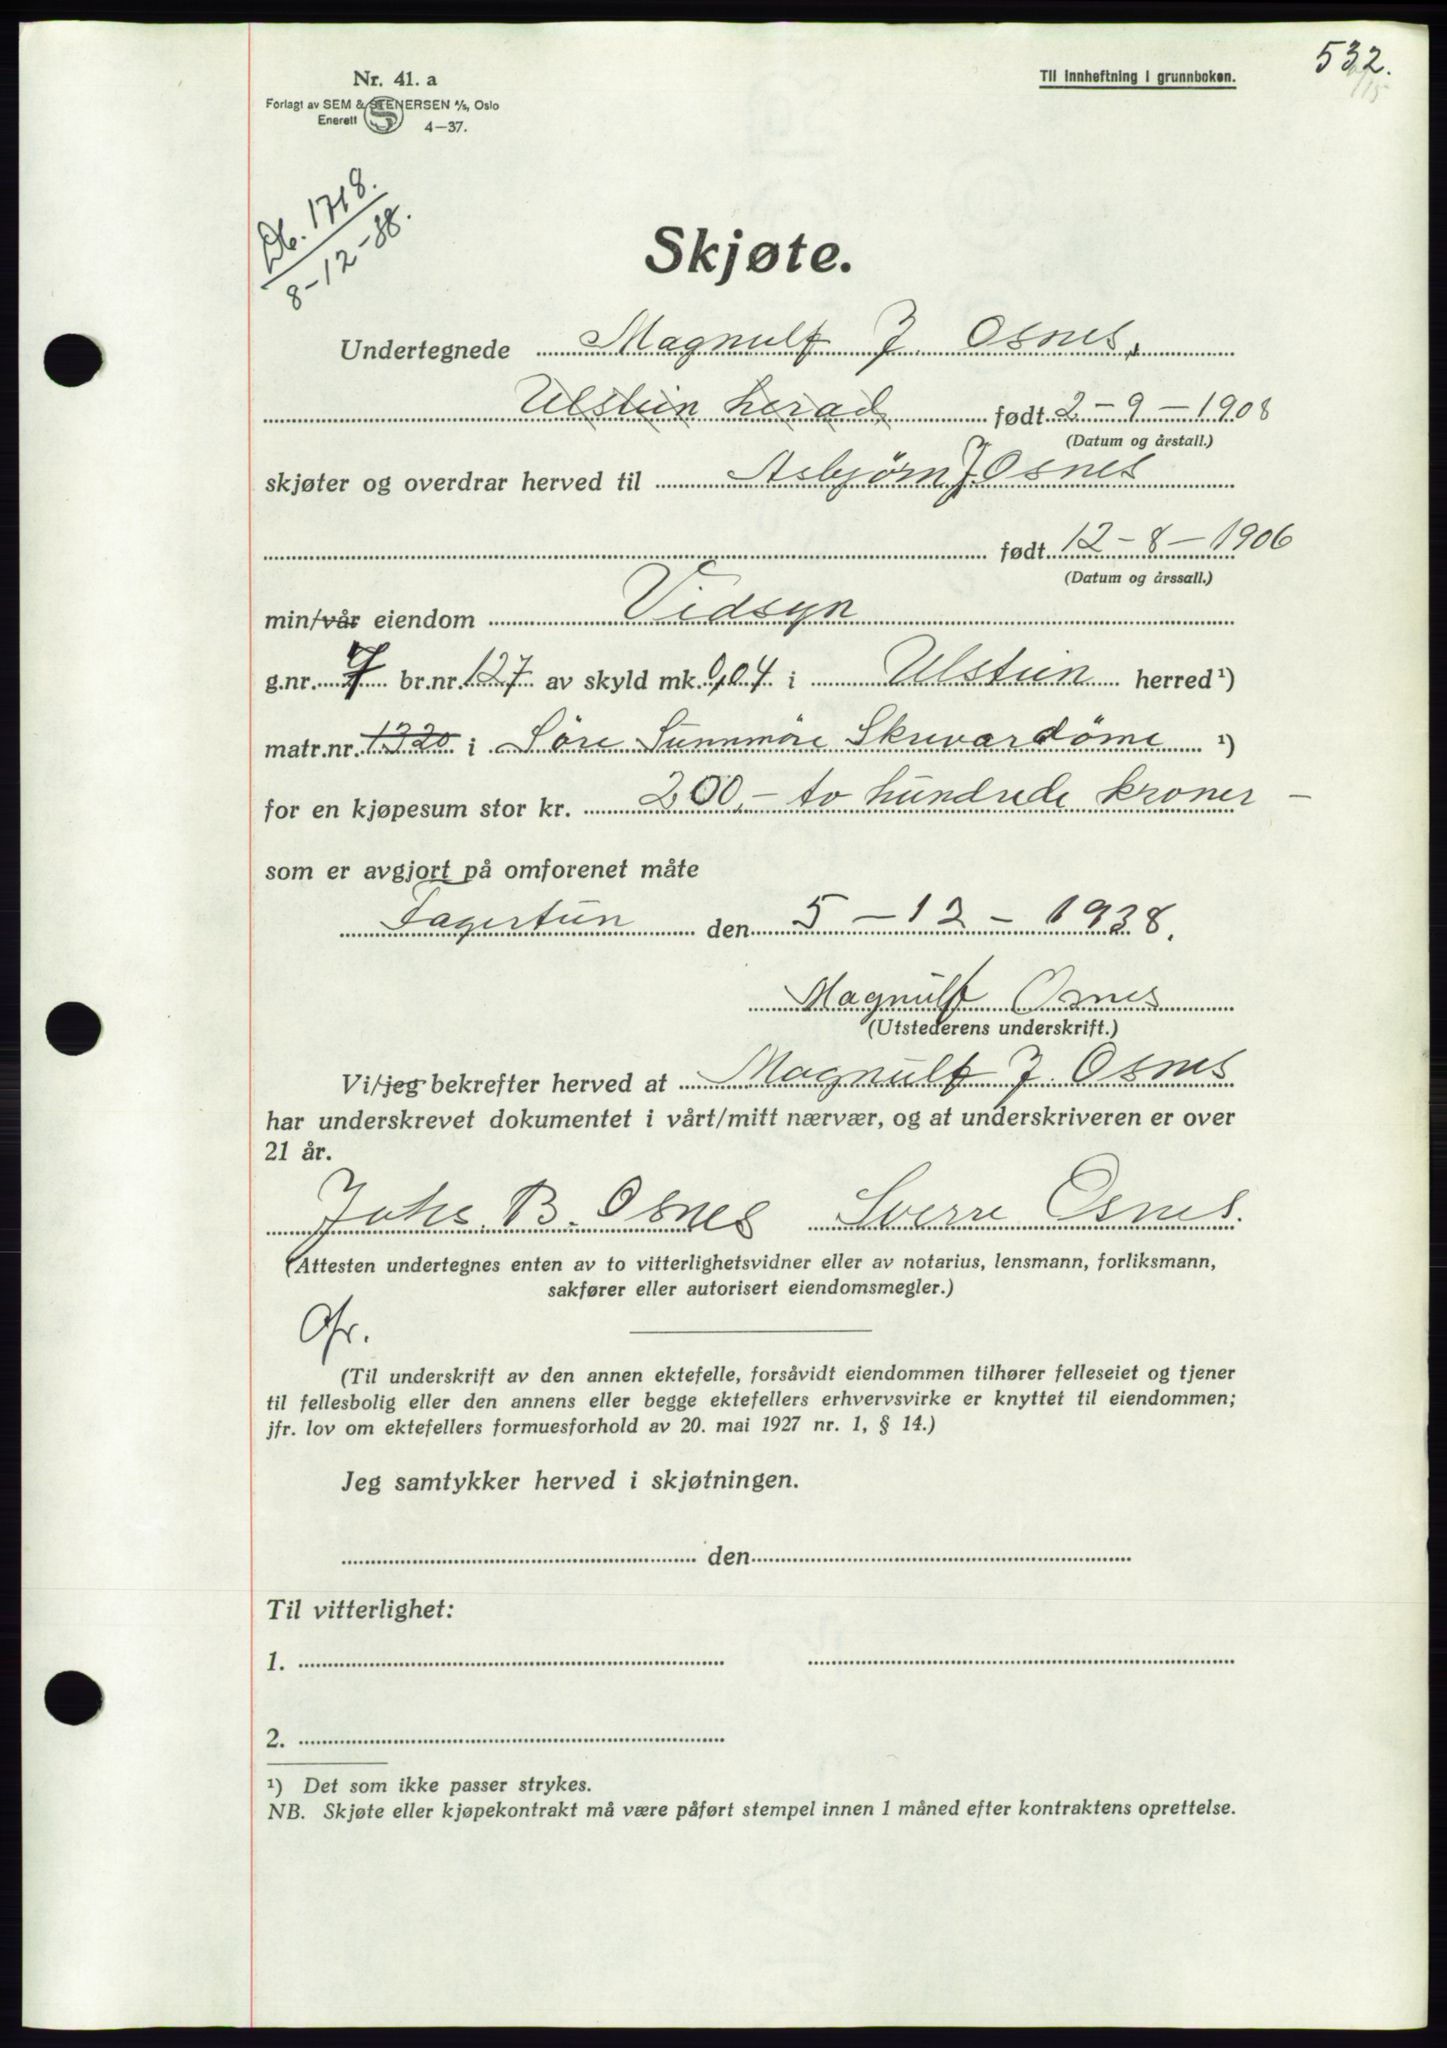 532.
Nr. 41. a
Til innheftning i grunnboken.
Forlagt av SEM & STENERSEN A/S, Oslo
Enerett
4—37.
Db. 1718.
8-12-38.
Skjøte.
Undertegnede Magnulf J. Osnes,
Ulstein herad født 2-9-1908
(Datum og årstall.)
skjøter og overdrar herved til Asbjørn J Osnes
født 12-8-1906
(Datum og årssall.)
min/vår eiendom Vidsyn
g.nr. 7 br.nr. 127 av skyld mk. 0,04 i Ulstein herred ¹)
matr.nr. 1320 i Søre Sunnmøre Skrivardøme ¹)
for en kjøpesum stor kr. 200,- to hundrede kroner -
som er avgjort på omforenet måte
Fagertun den 5-12-1938.
Magnulf Osnes
(Utstederens underskrift.)
Vi/jeg bekrefter herved at Magnulf J. Osnes
har underskrevet dokumentet i vårt/mitt nærvær, og at underskriveren er over
21 år.
Johs. B. Osnes Sverre Osnes.
(Attesten undertegnes enten av to vitterlighetsvidner eller av notarius, lensmann, forliksmann,
sakfører eller autorisert eiendomsmegler.)
(Til underskrift av den annen ektefelle, forsåvidt eiendommen tilhører felleseiet og tjener
til fellesbolig eller den annens eller begge ektefellers erhvervsvirke er knyttet til eiendommen;
jfr. lov om ektefellers formuesforhold av 20. mai 1927 nr. 1, § 14.)
Jeg samtykker herved i skjøtningen.
den
Til vitterlighet:
1.
2.
¹) Det som ikke passer strykes.
NB. Skjøte eller kjøpekontrakt må være påført stempel innen 1 måned efter kontraktens oprettelse.